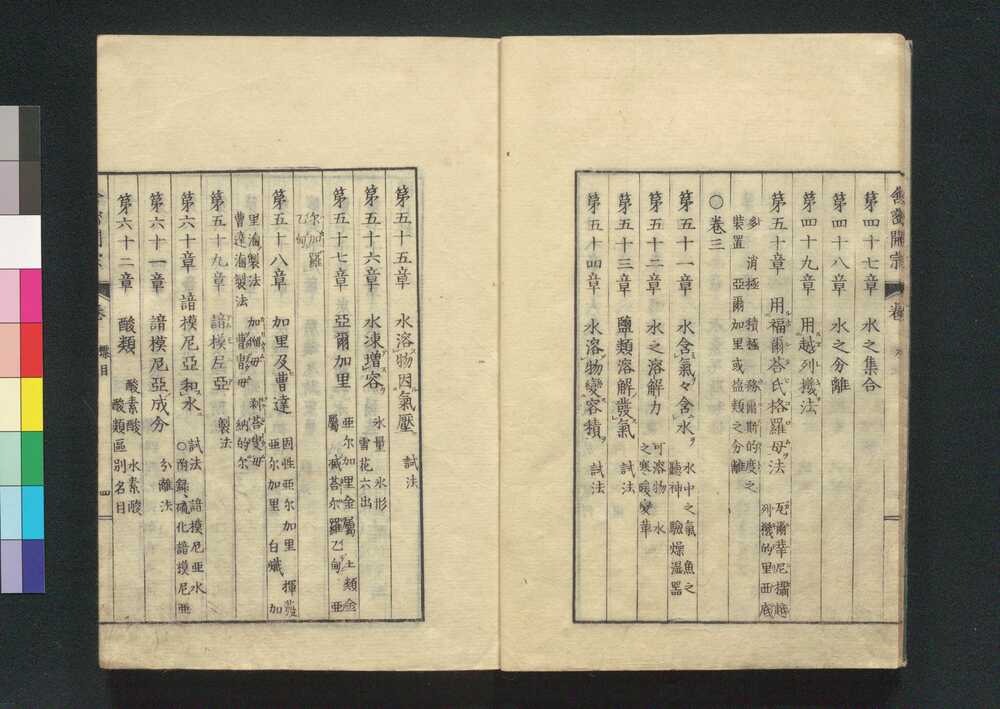 舎密開宗
第四十七章 水之集合
第四十八章 水之分離
第四十九章 用越列機法
第五十章 用福爾荅氏格羅母法
瓦爾華尼攝越
列機的里西底
多 消極 積極 務爾斯的度之
裝置 亞爾加里或塩類之分離
〇卷三
第五十一章 水含氣々含水
水中之氣 魚之
聽神 驗燥濕器
第五十二章 水之溶解力
可溶物 水
之寒暖變革
第五十三章 鹽類溶解發氣 試法
第五十四章 水溶物變容積 試法
第五十五章 水溶物因氣壓 試法
第五十六章 水凍增容
氷量 氷形
雪花六出
第五十七章 亞爾加里
亜尔加里金屬 土類金
屬 孛荅尔羅乙甸 亜
尔加羅
乙甸
第五十八章 加里及曹達
固性亜尔加里 揮發
亜尔加里 白蠟 加
里滷製法
曹達滷製法
第五十九章 諳模尼亞 製法
第六十章 諳模尼亞和水
試法 諳模尼亜水
〇附録 硫化諳模尼亜
第六十一章 諳模尼亞成分 分離法
第六十二章 酸類
酸素酸 水素酸
酸類區別名目
目
四